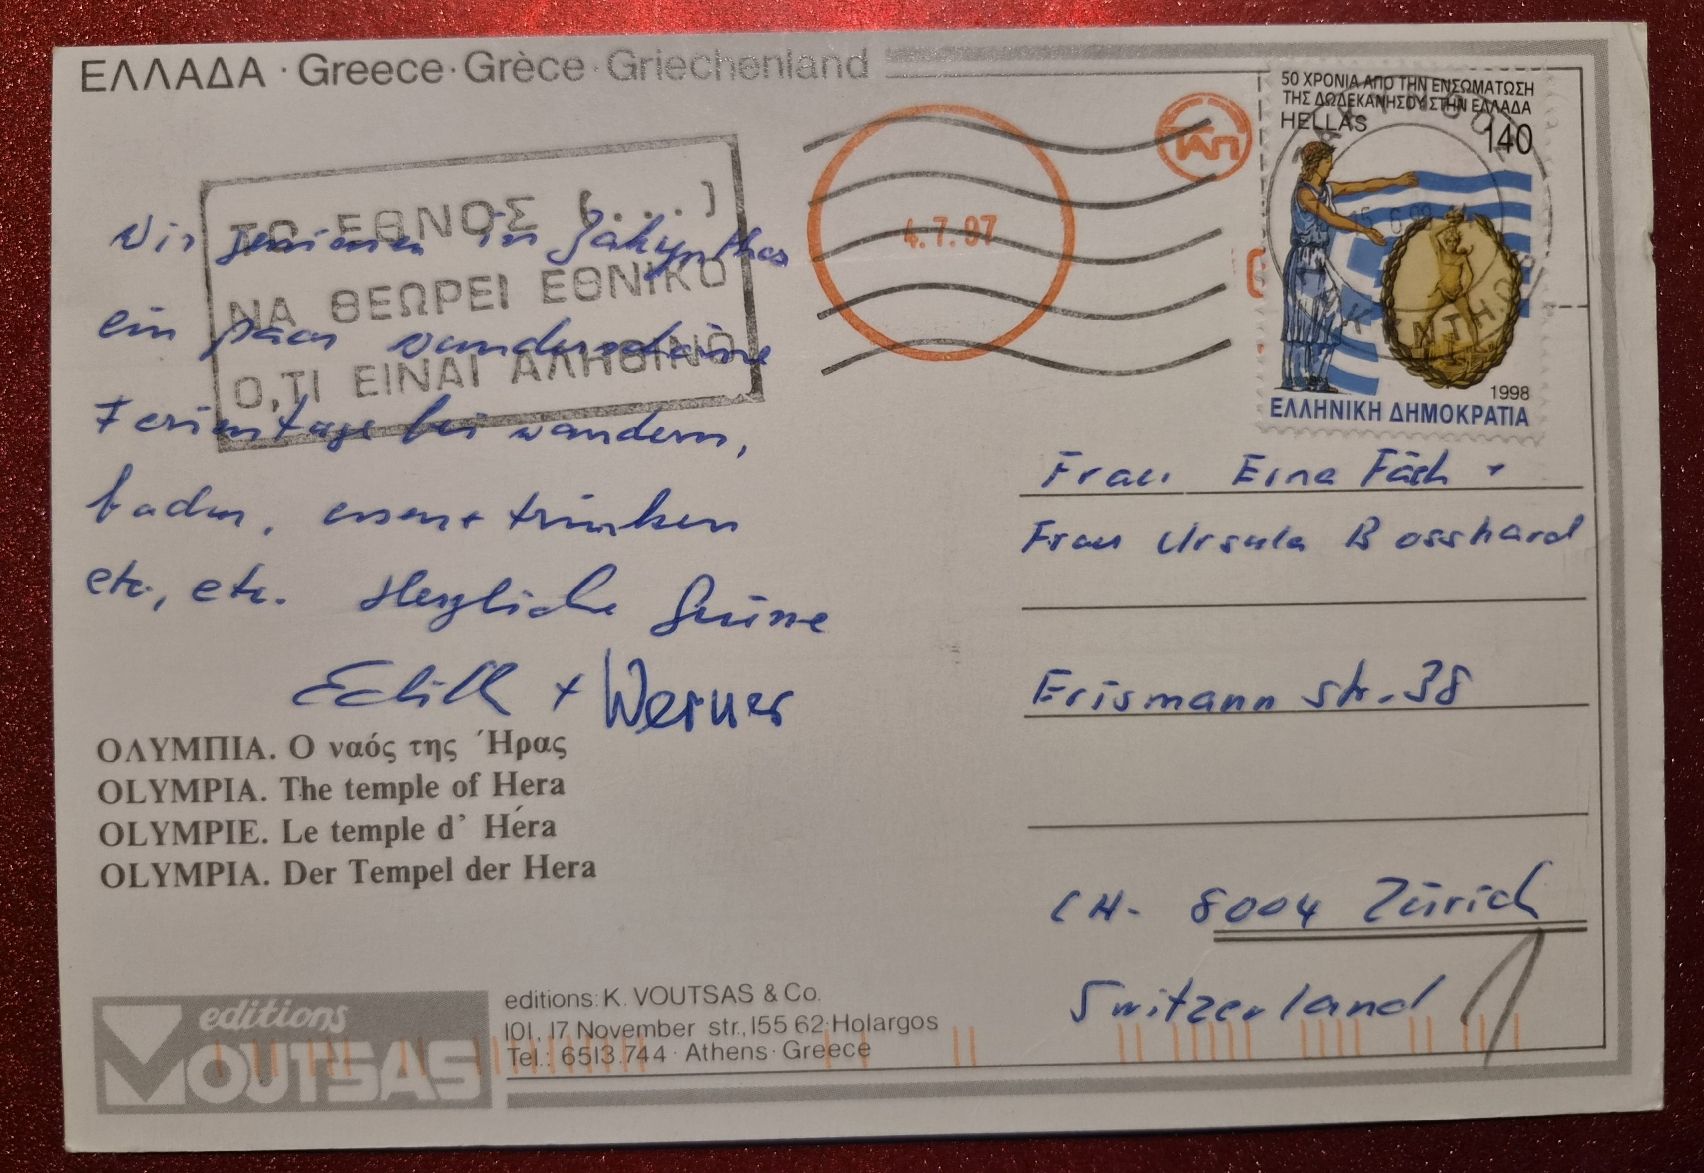 ΕΛΛΑΔΑ · Greece · Grèce · Griechenland
ΤΟ ΕΘΝΟΣ (...)
ΝΑ ΘΕΩΡΕΙ ΕΘΝΙΚΟ
Ο,ΤΙ ΕΙΝΑΙ ΑΛΗΘΙΝΟ
4.7.07
50 ΧΡΟΝΙΑ ΑΠΟ ΤΗΝ ΕΝΣΩΜΑΤΩΣΗ
ΤΗΣ ΔΩΔΕΚΑΝΗΣΟΥ ΣΤΗΝ ΕΛΛΑΔΑ
HELLAS 140
1998
ΕΛΛΗΝΙΚΗ ΔΗΜΟΚΡΑΤΙΑ
Wir geniessen in Zakynthos
ein paar wunderschöne
Ferientage bei wandern,
baden, essen + trinken
etc., etc. Herzliche Grüsse
Edith + Werner
ΟΛΥΜΠΙΑ. Ο ναός της Ήρας
OLYMPIA. The temple of Hera
OLYMPIE. Le temple d' Héra
OLYMPIA. Der Tempel der Hera
editions
VOUTSAS
editions: K. VOUTSAS & Co.
101, 17 November str., 155 62·Holargos
Tel.: 6513.744 · Athens · Greece
Frau Erna Fäsh +
Frau Ursula Bosshard
Erismannstr. 38
CH- 8004 Zürich
Switzerland